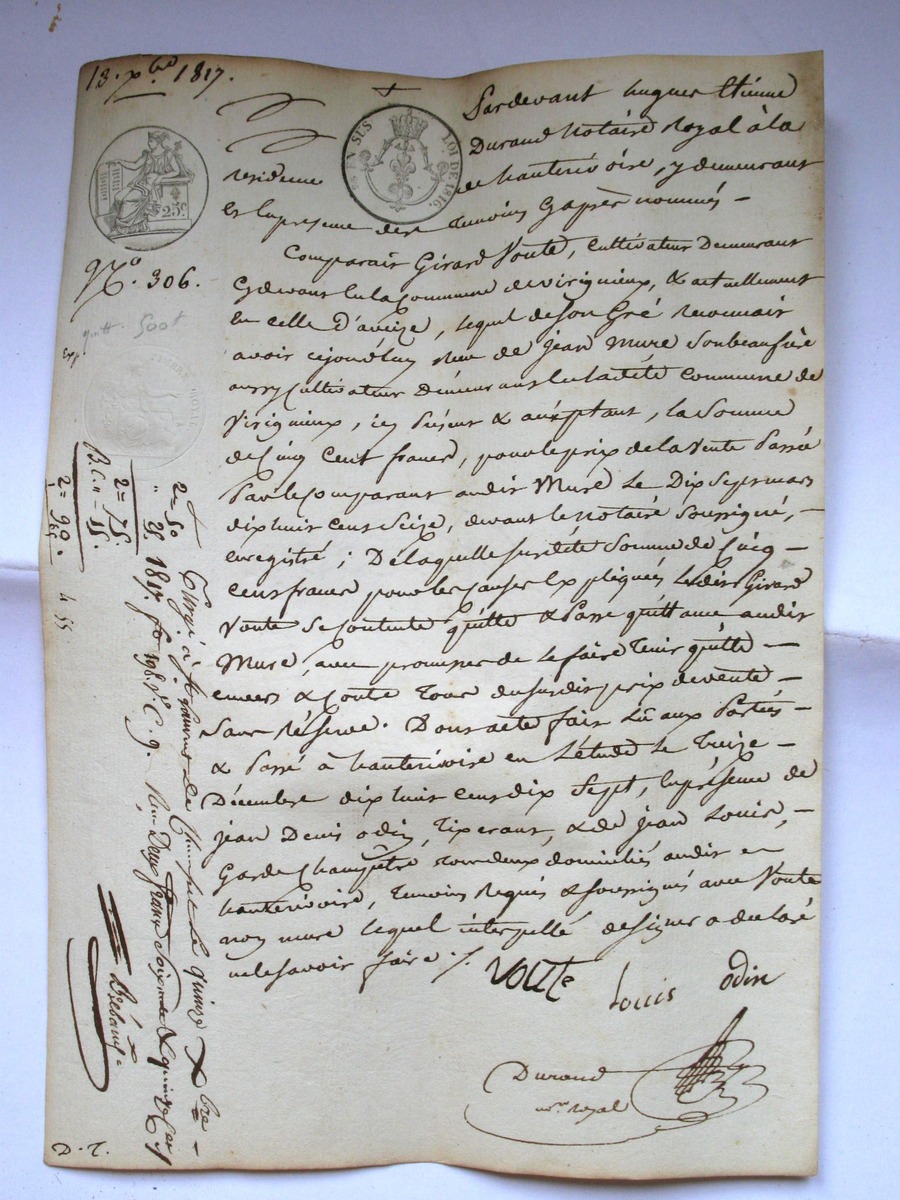 13. xbre 1817.
Pardevant hugues Etienne
Durand Notaire Royal à la
residence de hauterivoire, y demeurant
En la présence des temoins Cy après nommés —
EN SUS LOI DE 1816.
25c.
No. 306.
quitt. 500f
Comparait Girard Voute, Cultivateur Demeurant
Cydevant En la Commune de virignieux, & actuellement
En celle D'aveize, lequel de Son Gré reconnait
avoir cejourd'huy reçu de jean Mure Son beaufrère
aussy Cultivateur Demeurant En la ditte Commune de
Virignieux, icy Présent & acceptant, la Somme
de Cinq Cent francs, pour le prix de la Vente Passée
Par le Comparant audit Mure Le Dix Sept mars
dix huit Cent Seize, devant le Notaire Soussigné, —
enregistré ; De laquelle susditte Somme de Cinq —
Cent francs pour les causes Expliquées Ledit Girard
Voute Se Contente quitte & Passe quittance audit
Mure, avec promesse de le faire Tenir quitte —
envers & Contre Tous du susdit prix de vente —
Sans Réserve. Dont acte fait Lû aux Parties —
& Passé à hauterivoire en L'étude Le Treize —
Décembre dix huit Cent dix Sept, En présence de
jean Denis odin, Tixerant, & de jean Louis, —
Garde Champêtre tous deux domiciliés audit
hauterivoire, Temoins Requis & Soussignés avec Voute
non mure lequel interpellé de signer a declaré
ne le savoir faire ./.
VOUTE Louis odin
Durand
nre. royal
2= 50
" 25
2= 75.
B.C. = 55.
2= 90.
Enregistré à St Laurent de Chamousset le quinze Xbre
1817. fo 198 Vo C. 9. Reçu Deux francs Soixante & quinze Ces
D. T.